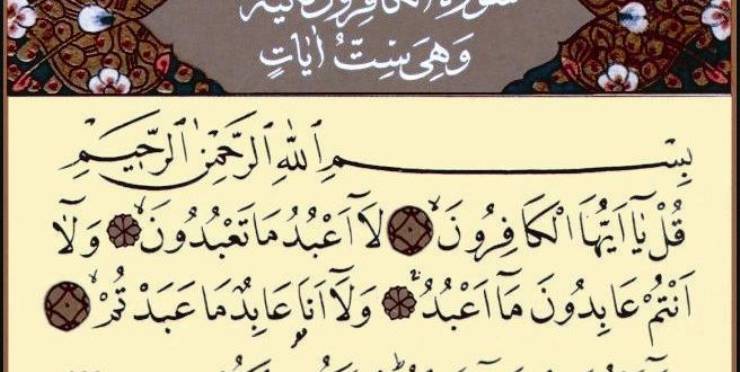 سُورَةُ الْكَافِرُونَ مَكِّيَّةٌ
وَهِيَ سِتُّ اٰيَاتٍ
بِسْمِ اللّٰهِ الرَّحْمٰنِ الرَّحِيمِ
قُلْ يَٓا اَيُّهَا الْكَافِرُونَۙ لَٓا اَعْبُدُ مَا تَعْبُدُونَۙ وَلَٓا
اَنْتُمْ عَابِدُونَ مَٓا اَعْبُدُۚ وَلَٓا اَنَا۬ عَابِدٌ مَا عَبَدْتُمْۙ